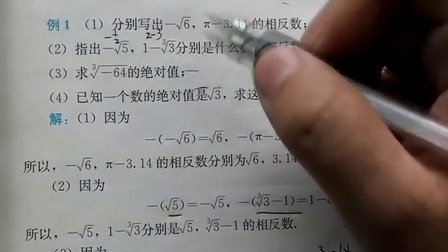 例1 (1) 分别写出−√6，π−3.14的相反数；
(2) 指出−√5，1−∛3分别是什么
(3) 求∛−64的绝对值；
(4) 已知一个数的绝对值是√3，求这
解：(1) 因为
−(−√6)=√6，−(π−3.
所以，−√6，π−3.14的相反数分别为√6，3.14
(2) 因为
−(√5)=−√5，−(∛3−1)=1−
所以，−√5，1−∛3分别是√5，∛3−1的相反数.